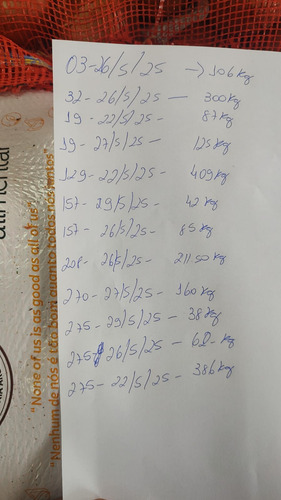 03-26/5/25 → 106 kg
32-26/5/25 — 300 kg
19-22/5/25 - 87 kg
19-27/5/25 — 125 kg
129-22/5/25 - 409 kg
157-29/5/25 - 42 kg
157-26/5/25 - 85 kg
208-26/5/25 - 211.50 kg
270-27/5/25 - 160 kg
275-29/5/25 - 38 kg
275-26/5/25 - 60- kg
275-22/5/25 - 386 kg
alimentar
"None of us is as good as all of us"
"Nenhum de nós é tão bom quanto todos nós juntos